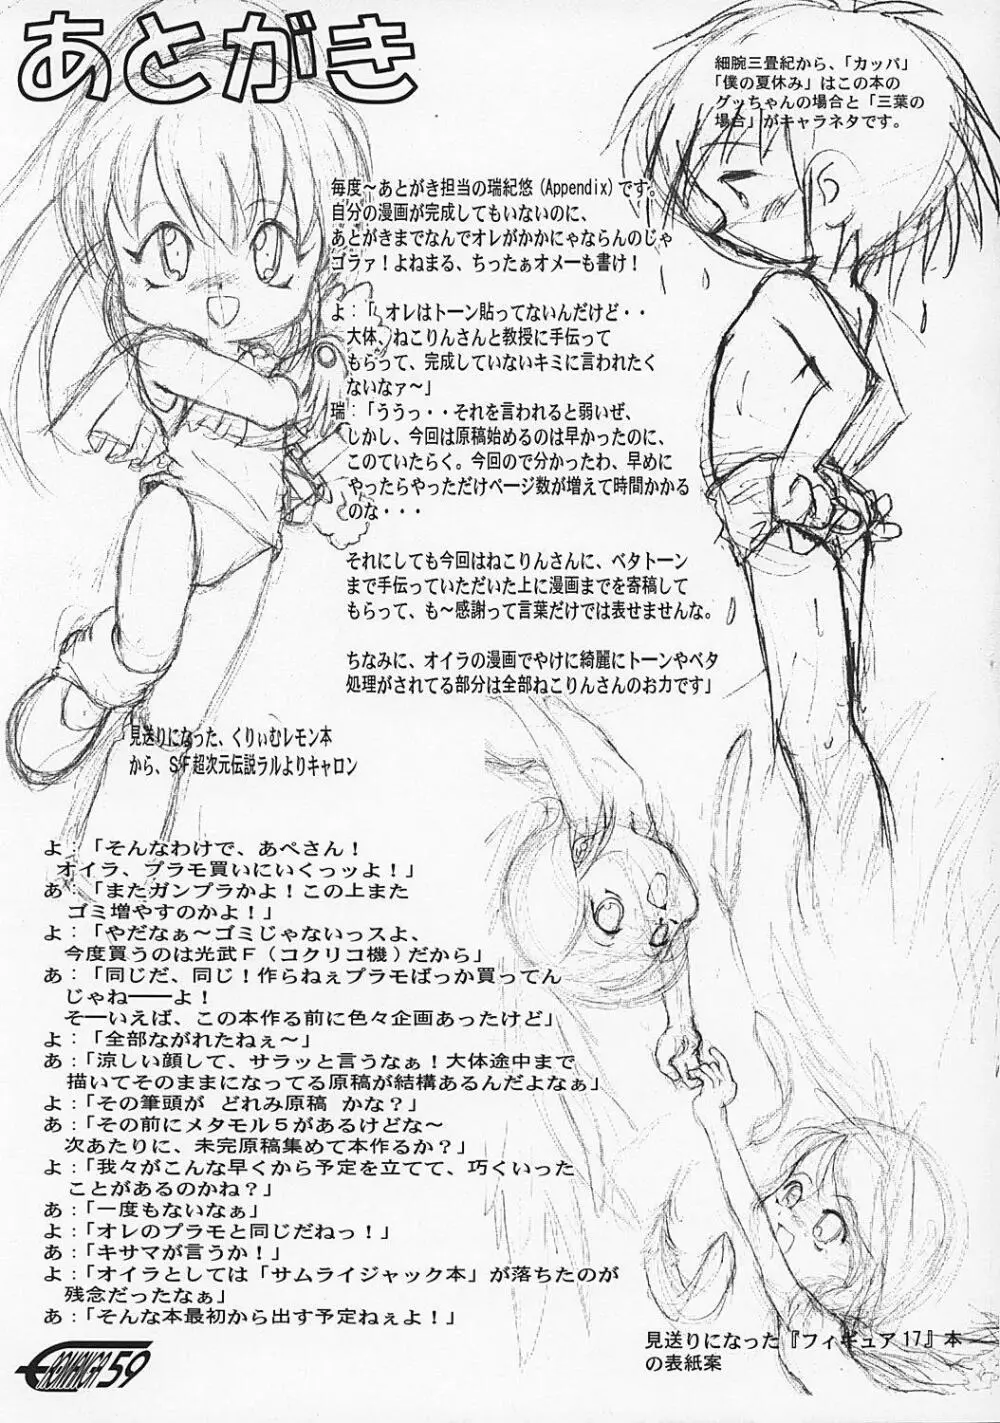 あとがき
細腕三畳紀から、「カッパ」
「僕の夏休み」はこの本の
グッちゃんの場合と「三葉の
場合」がキャラネタです。
毎度～あとがき担当の瑞紀悠(Appendix)です。
自分の漫画が完成してもいないのに、
あとがきまでなんでオレがかかにゃならんのじゃ
ゴラァ！よねまる、ちったぁオメーも書け！
よ：「オレはトーン貼ってないんだけど・・
大体、ねこりんさんと教授に手伝って
もらって、完成していないキミに言われたく
ないなァ～」
瑞：「ううっ・・それを言われると弱いぜ、
しかし、今回は原稿始めるのは早かったのに、
このていたらく。今回ので分かったわ、早めに
やったらやっただけページ数が増えて時間かかる
のな・・・
それにしても今回はねこりんさんに、ベタトーン
まで手伝っていただいた上に漫画までを寄稿して
もらって、も～感謝って言葉だけでは表せませんな。
ちなみに、オイラの漫画でやけに綺麗にトーンやベタ
処理がされてる部分は全部ねこりんさんのお力です」
見送りになった、くりぃむレモン本
から、ＳＦ超次元伝説ラルよりキャロン
よ：「そんなわけで、あぺさん！
オイラ、プラモ買いにいくっッよ！」
あ：「またガンプラかよ！この上また
ゴミ増やすのかよ！」
よ：「やだなぁ～ゴミじゃないっスよ、
今度買うのは光武Ｆ（コクリコ機）だから」
あ：「同じだ、同じ！作らねぇプラモばっか買ってん
じゃね――よ！
そーいえば、この本作る前に色々企画あったけど」
よ：「全部ながれたねぇ～」
あ：「涼しい顔して、サラッと言うなぁ！大体途中まで
描いてそのままになってる原稿が結構あるんだよなぁ」
よ：「その筆頭が どれみ原稿 かな？」
あ：「その前にメタモル５があるけどな～
次あたりに、未完原稿集めて本作るか？」
よ：「我々がこんな早くから予定を立てて、巧くいった
ことがあるのかね？」
あ：「一度もないなぁ」
よ：「オレのプラモと同じだねっ！」
あ：「キサマが言うか！」
よ：「オイラとしては「サムライジャック本」が落ちたのが
残念だったなぁ」
あ：「そんな本最初から出す予定ねぇよ！」
見送りになった『フィギュア17』本
の表紙案
EROMANGA 59